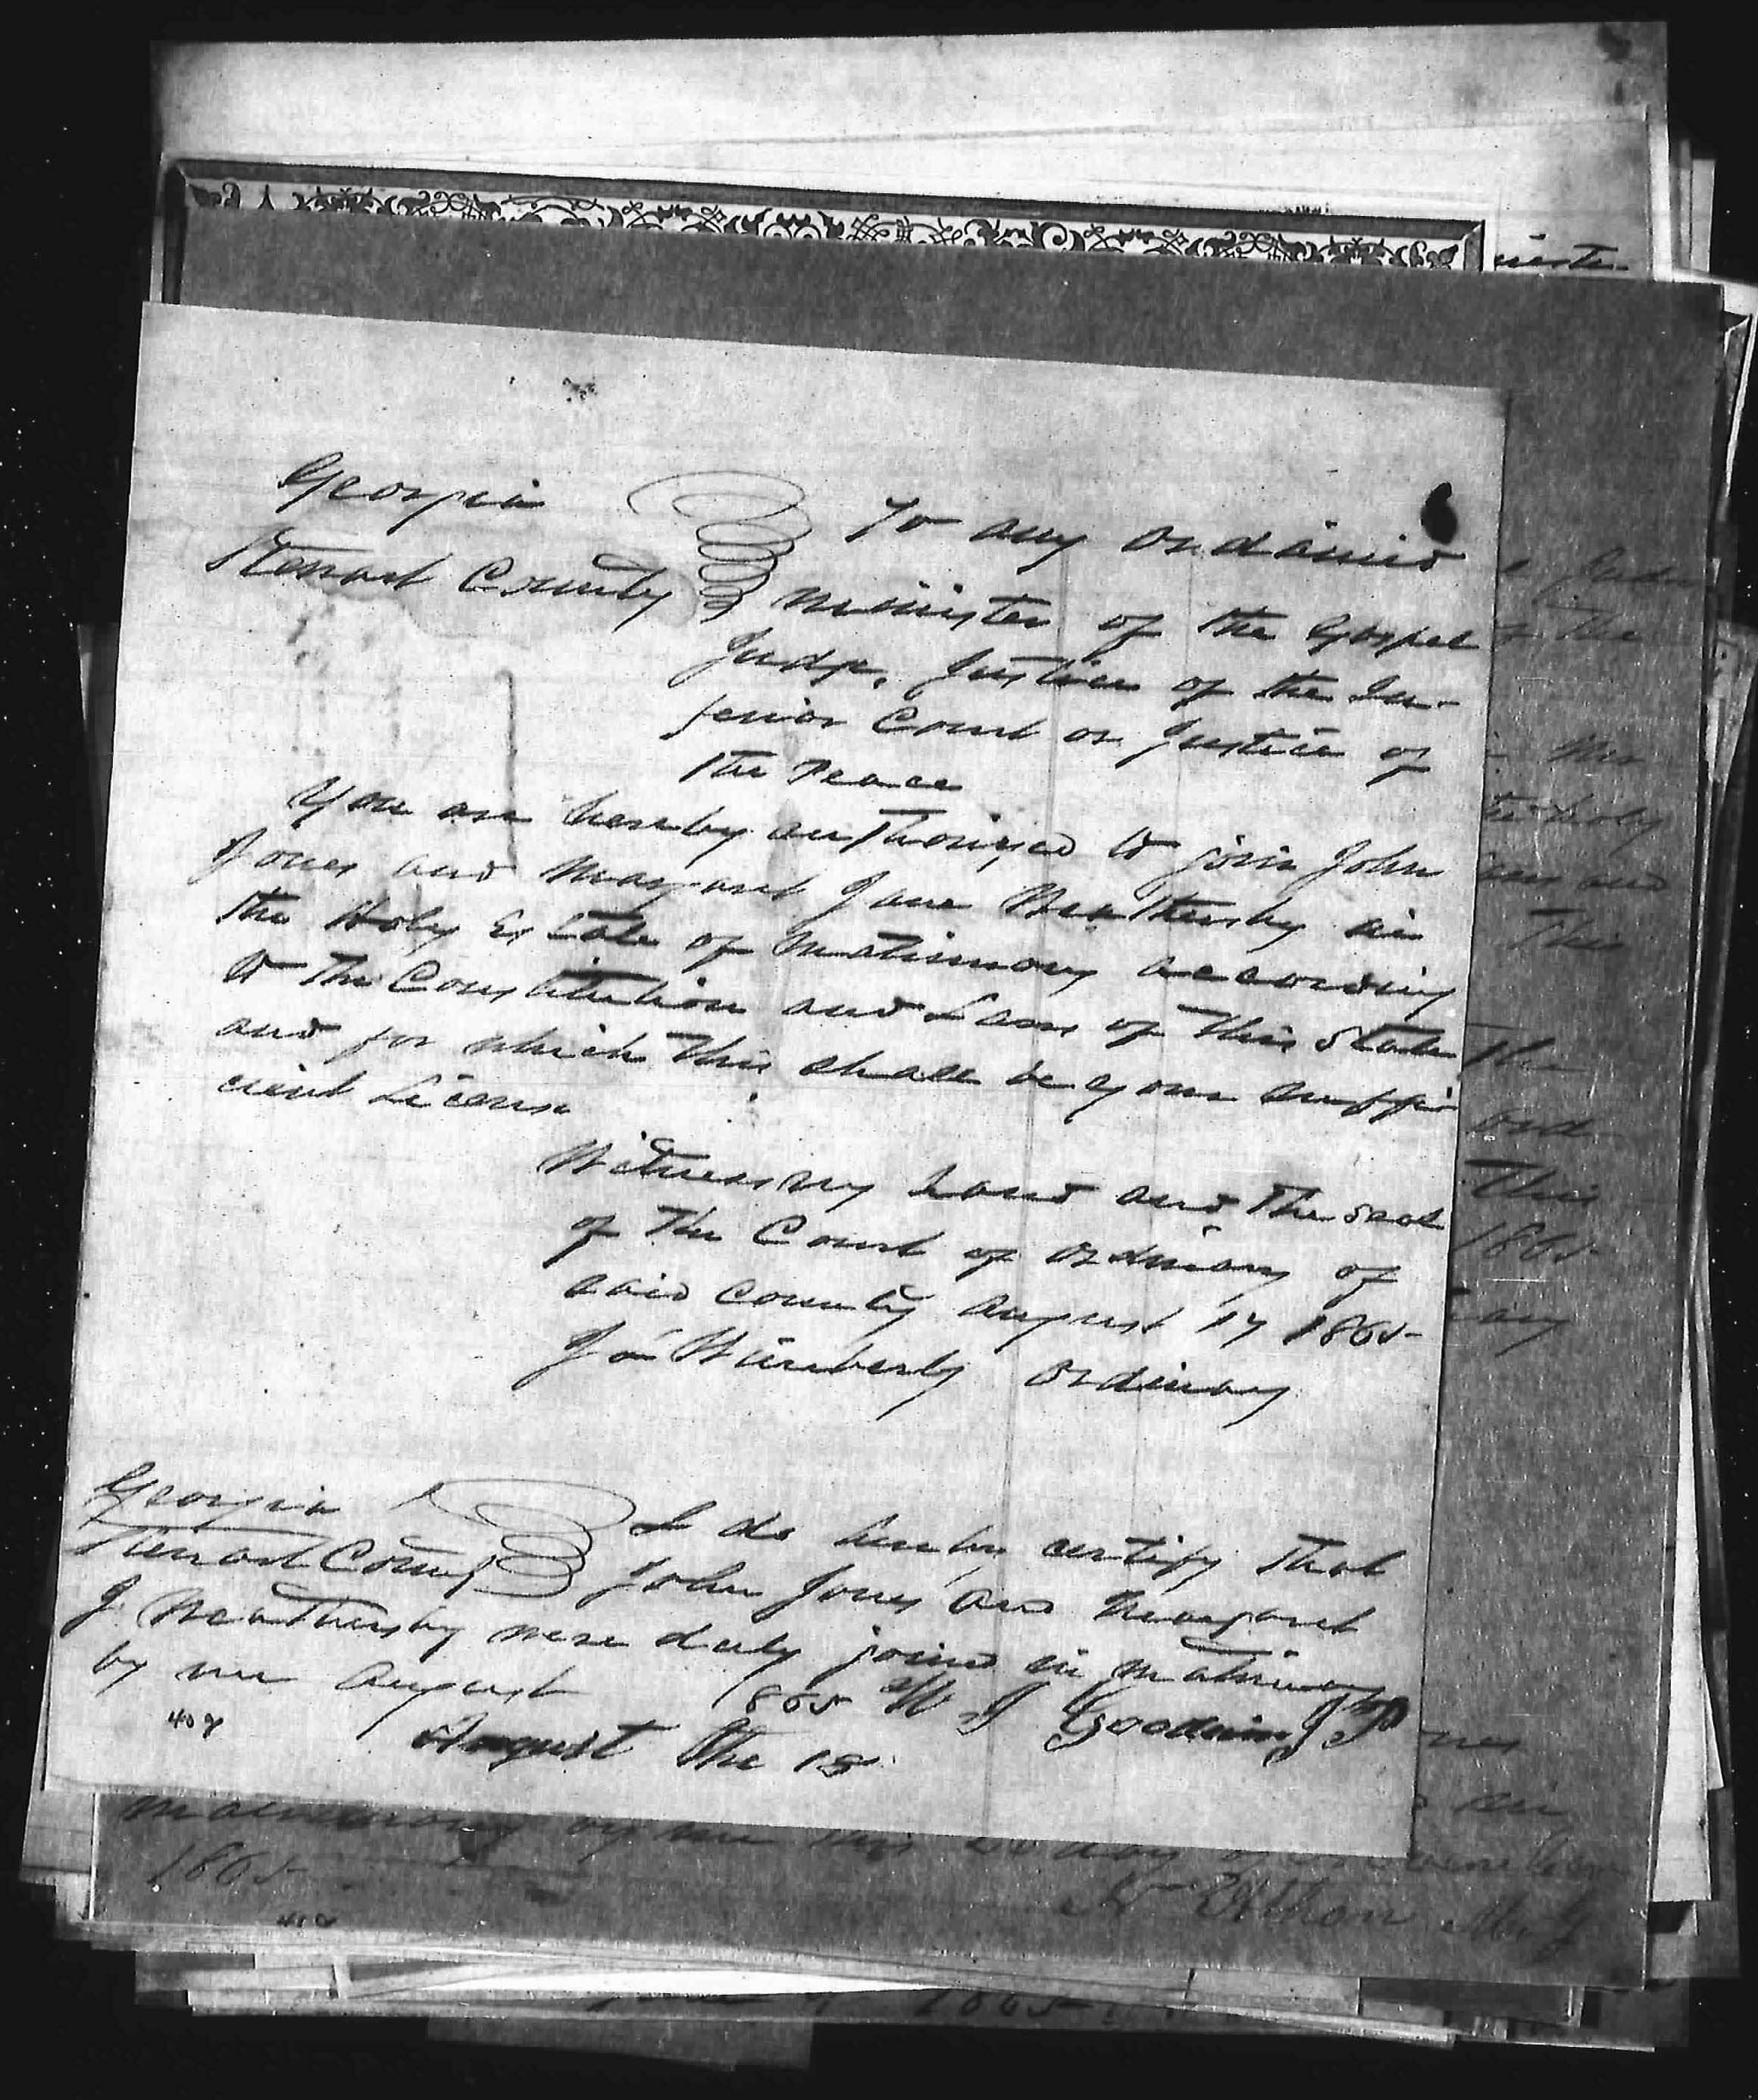 Georgia
Stewart County
To any ordained
minister of the Gospel
Judge, Justice of the In-
ferior Court or Justice of
the Peace
You are hereby authorized to join John
Jones and Margaret Jane Weathersby in
the Holy Estate of Matrimony according
to the Constitution and Laws of this State
and for which this shall be your suffi-
cient License
Witness my hand and the seal
of the Court of ordinary of
said county August 17 1865
Wimberly ordinary
Georgia
Stewart County
I do hereby certify that
John Jones and Margaret
J Weathersby were duly joined in matrimony
by me August 1865 W J Goodwin JP
August the 18
409
1865